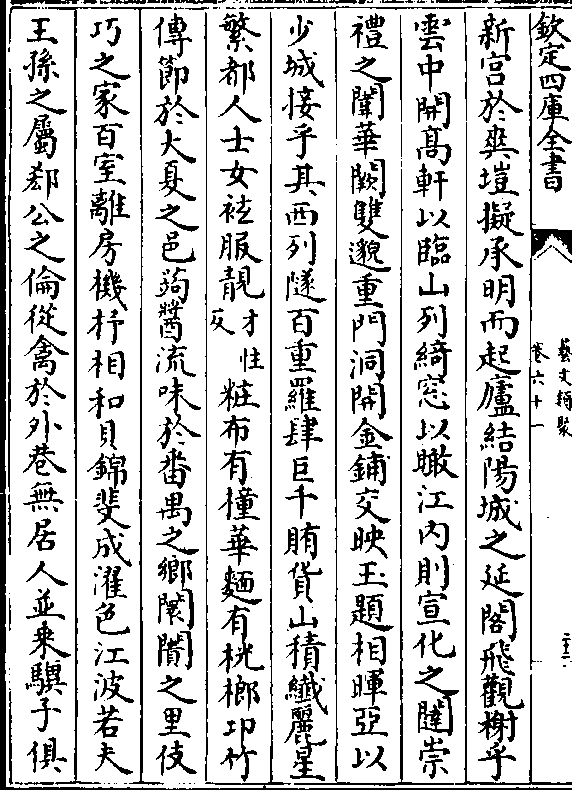 欽定四庫全書
藝文類聚
卷六十一
新宫於爽塏擬承明而起廬結陽城之延閣飛觀榭乎
雲中開髙軒以臨山列綺窓以瞰江内則宣化之闥崇
禮之闈華闕雙邈重門洞開金鋪交映玉題相暉亞以
少城接乎其西列隧百重羅肆巨千賄貨山積纎麗星
繁都人士女袨服靚才性反粧布有橦華麵有桄榔卭竹
傳節於大夏之邑蒟醬流味於番禺之鄉闤闠之里伎
巧之家百室離房機杼相和貝錦斐成濯色江波若夫
王孫之屬郄公之倫從禽於外巷無居人並乗驥子俱